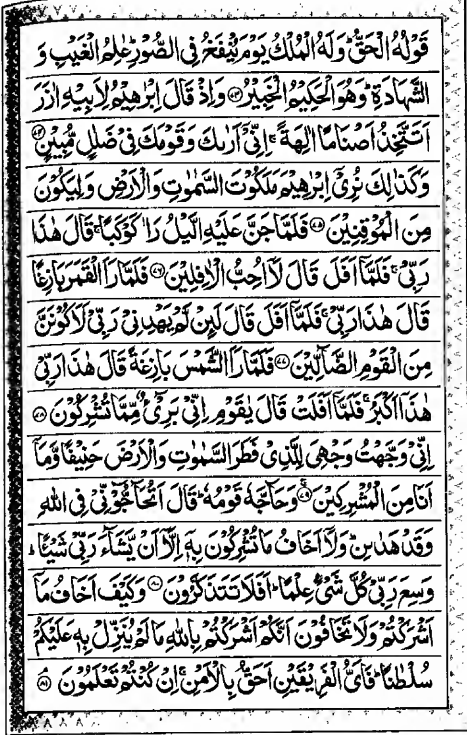 قَوْلُهُ الْحَقُّ ؕ وَلَهُ الْمُلْكُ يَوْمَ يُنْفَخُ فِي الصُّوْرِ ؕ عٰلِمُ الْغَيْبِ وَ
الشَّهَادَةِ ؕ وَهُوَ الْحَكِيْمُ الْخَبِيْرُ ۝۷۳ وَاِذْ قَالَ اِبْرٰهِيْمُ لِاَبِيْهِ اٰزَرَ
اَتَتَّخِذُ اَصْنَامًا اٰلِهَةً ۚ اِنِّيْۤ اَرٰىكَ وَقَوْمَكَ فِيْ ضَلٰلٍ مُّبِيْنٍ ۝۷۴
وَكَذٰلِكَ نُرِيْۤ اِبْرٰهِيْمَ مَلَكُوْتَ السَّمٰوٰتِ وَالْاَرْضِ وَلِيَكُوْنَ
مِنَ الْمُوْقِنِيْنَ ۝۷۵ فَلَمَّا جَنَّ عَلَيْهِ الَّيْلُ رَاٰ كَوْكَبًا ۚ قَالَ هٰذَا
رَبِّيْ ۚ فَلَمَّاۤ اَفَلَ قَالَ لَاۤ اُحِبُّ الْاٰفِلِيْنَ ۝۷۶ فَلَمَّا رَاَ الْقَمَرَ بَازِغًا
قَالَ هٰذَا رَبِّيْ ۚ فَلَمَّاۤ اَفَلَ قَالَ لَىِٕنْ لَّمْ يَهْدِنِيْ رَبِّيْ لَاَكُوْنَنَّ
مِنَ الْقَوْمِ الضَّآلِّيْنَ ۝۷۷ فَلَمَّا رَاَ الشَّمْسَ بَازِغَةً قَالَ هٰذَا رَبِّيْ
هٰذَاۤ اَكْبَرُ ۚ فَلَمَّاۤ اَفَلَتْ قَالَ يٰقَوْمِ اِنِّيْ بَرِيْٓءٌ مِّمَّا تُشْرِكُوْنَ ۝۷۸
اِنِّيْ وَجَّهْتُ وَجْهِيَ لِلَّذِيْ فَطَرَ السَّمٰوٰتِ وَالْاَرْضَ حَنِيْفًا وَّمَاۤ
اَنَا مِنَ الْمُشْرِكِيْنَ ۝۷۹ وَحَآجَّهٗ قَوْمُهٗ ؕ قَالَ اَتُحَآجُّوْٓنِّيْ فِي اللّٰهِ
وَقَدْ هَدٰىنِ ؕ وَلَاۤ اَخَافُ مَا تُشْرِكُوْنَ بِهٖۤ اِلَّاۤ اَنْ يَّشَآءَ رَبِّيْ شَيْـًٔا ؕ
وَسِعَ رَبِّيْ كُلَّ شَيْءٍ عِلْمًا ؕ اَفَلَا تَتَذَكَّرُوْنَ ۝۸۰ وَكَيْفَ اَخَافُ مَاۤ
اَشْرَكْتُمْ وَلَا تَخَافُوْنَ اَنَّكُمْ اَشْرَكْتُمْ بِاللّٰهِ مَا لَمْ يُنَزِّلْ بِهٖ عَلَيْكُمْ
سُلْطٰنًا ؕ فَاَيُّ الْفَرِيْقَيْنِ اَحَقُّ بِالْاَمْنِ ۚ اِنْ كُنْتُمْ تَعْلَمُوْنَ ۝۸۱